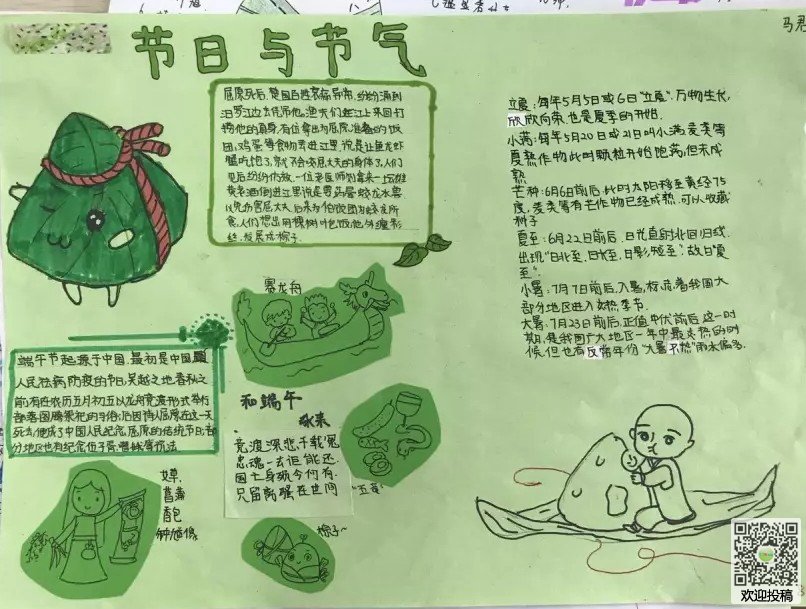 节日与节气
马君
屈原死后,楚国百姓哀痛异常,纷纷涌到
汨罗江边去凭吊他。渔夫们在江上来回打
捞他的真身。有位拿出为屈原准备的饭
团、鸡蛋等食物丢进江里,说是让鱼龙虾
蟹吃饱了,就不会咬屈大夫的身体了。人们
见后纷纷仿效。一位老医师则拿来一坛雄
黄老酒倒进江里,说是要药晕蛟龙水兽,
以免伤害屈大夫。后来为怕饭团为蛟龙所
食,人们想出用楝树叶包饭,他外缠彩
丝,发展成棕子。
立夏:每年5月5日或6日“立夏”,万物生长,
欣欣向荣,也是夏季的开始.
小满:每年5月20日或21日叫小满,麦类等
夏熟作物此时颗粒开始饱满,但未成
熟
芒种:6月6日前后,此时太阳移至黄经75
度,麦类等有芒作物已经成熟,可以收藏
种子
夏至:6月22日前后,日光直射北回归线,
出现“日北至,日长至,日影短至”,故曰“夏
至”.
小暑:7月7日前后,入暑,标志着我国大
部分地区进入炎热季节.
大暑:7月23日前后,正值中伏前后,这一时
期,是我国广大地区一年中最炎热的时
候,但也有反常年份“大暑不热”雨水偏多.
赛龙舟
端午节起源于中国,最初是中国
人民祛病防疫的节日,吴越之地春秋之
前有在农历五月初五以龙舟竞渡形式举行
部落图腾祭祀的习俗;后因诗人屈原在这一天
死去,便成了中国人民纪念屈原的传统节日;部
分地区也有纪念伍子胥、曹娥等说法
和端午
张耒
竞渡深悲千载冤
忠魂一去讵能还
国亡身殒今何有
只留离骚在世间
“五黄”
艾草
菖蒲
香包
钟馗像
棕子~
欢迎投稿